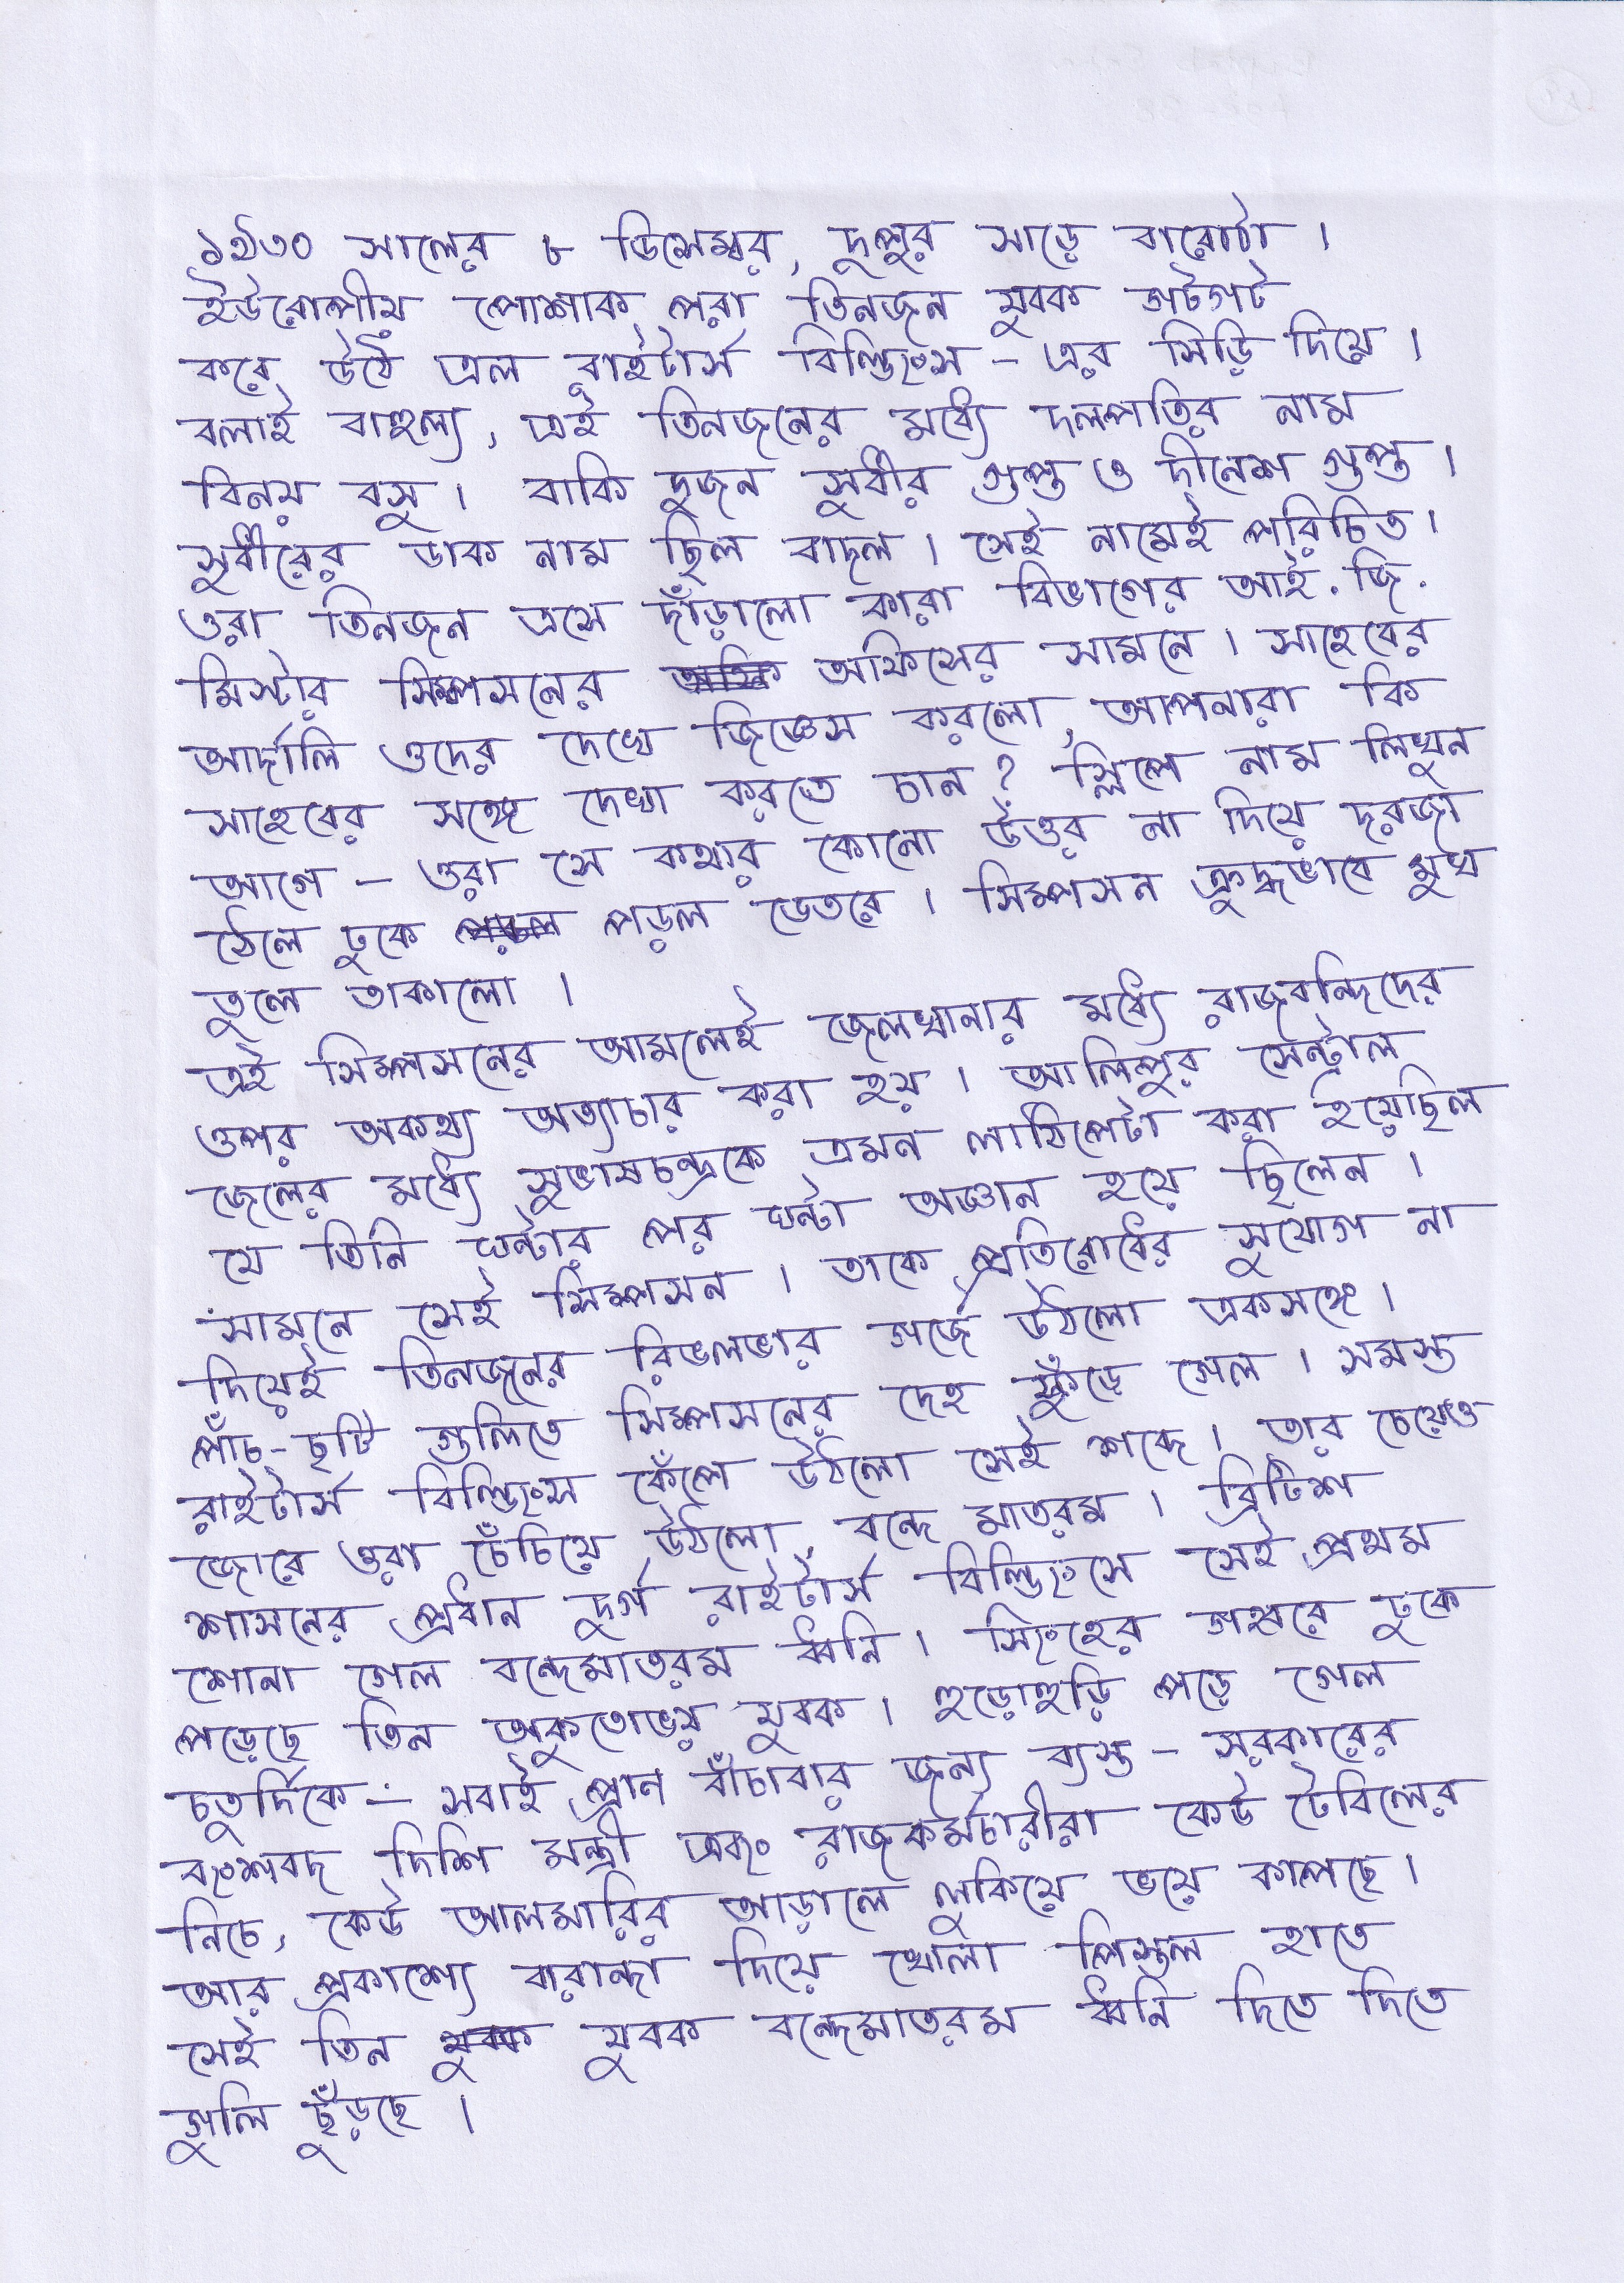 ১৯৩০ সালের ৮ ডিসেম্বর, দুপুর সাড়ে বারোটা।
ইউরোপীয় পোশাক পরা তিনজন যুবক গটগট
করে উঠে এল রাইটার্স বিল্ডিংস - এর সিড়ি দিয়ে।
বলাই বাহুল্য, এই তিনজনের মধ্যে দলপতির নাম
বিনয় বসু। বাকি দুজন সুধীর গুপ্ত ও দীনেশ গুপ্ত।
সুধীরের ডাক নাম ছিল বাদল। সেই নামেই পরিচিত।
ওরা তিনজন এসে দাঁড়ালো কারা বিভাগের আই. জি.
মিস্টার সিম্পসনের অফিসের সামনে। সাহেবের
আর্দালি ওদের দেখে জিজ্ঞেস করলো, আপনারা কি
সাহেবের সঙ্গে দেখা করতে চান? স্লিপে নাম লিখুন
আগে - ওরা সে কথার কোনো উত্তর না দিয়ে দরজা
ঠেলে ঢুকে পড়ল ভেতরে। সিম্পসন ক্রুদ্ধভাবে মুখ
তুলে তাকালো।
এই সিম্পসনের আমলেই জেলখানার মধ্যে রাজবন্দিদের
ওপর অকথ্য অত্যাচার করা হয়। আলিপুর সেন্ট্রাল
জেলের মধ্যে সুভাষচন্দ্রকে এমন লাঠিপেটা করা হয়েছিল
যে তিনি ঘন্টার পর ঘন্টা অজ্ঞান হয়ে ছিলেন।
সামনে সেই সিম্পসন। তাকে প্রতিরোধের সুযোগ না
দিয়েই তিনজনের রিভলভার গর্জে উঠলো একসঙ্গে।
পাঁচ-ছটি গুলিতে সিম্পসনের দেহ ফুঁড়ে গেল। সমস্ত
রাইটার্স বিল্ডিংস কেঁপে উঠলো সেই শব্দে। তার চেয়েও
জোরে ওরা চেঁচিয়ে উঠলো, বন্দে মাতরম। ব্রিটিশ
শাসনের প্রধান দুর্গ রাইটার্স বিল্ডিংসে সেই প্রথম
শোনা গেল বন্দেমাতরম ধ্বনি। সিংহের গহ্বরে ঢুকে
পড়েছে তিন অকুতোভয় যুবক। হুড়োহুড়ি পড়ে গেল
চতুর্দিকে - সবাই প্রান বাঁচাবার জন্য ব্যস্ত - সরকারের
বংশবদ দিশি মন্ত্রী এবং রাজকর্মচারীরা কেউ টেবিলের
নিচে, কেউ আলমারির আড়ালে লুকিয়ে ভয়ে কাপছে।
আর প্রকাশ্যে বারান্দা দিয়ে খোলা পিস্তল হাতে
সেই তিন যুবক যুবক বন্দেমাতরম ধ্বনি দিতে দিতে
গুলি ছুঁড়ছে।